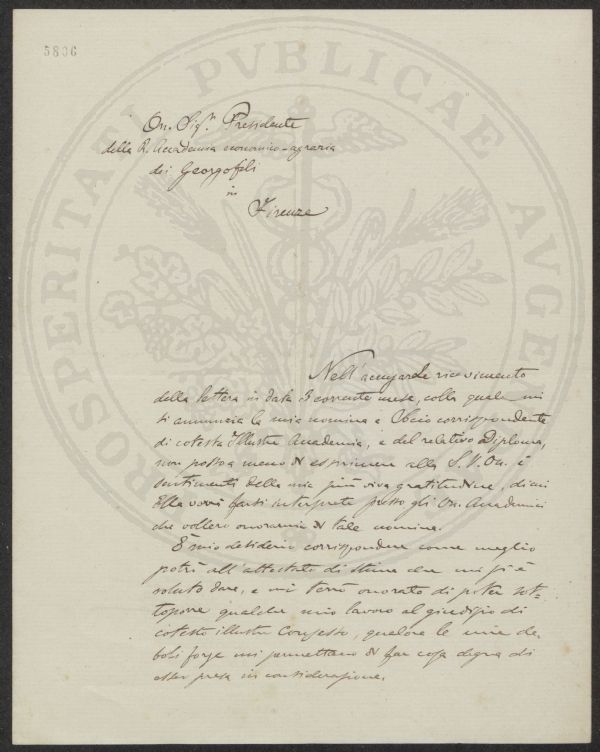 5806
PROSPERITATI PVBLICAE AVGENDAE
On. Sig.r Presidente
della R. Accademia economico-agraria
dei Georgofili
in
Firenze
Nell'accusarle ricevimento
della lettera in data 3 corrente mese, colla quale mi
si annuncia la mia nomina a Socio corrispondente
di cotesta Illustre Accademia, e del relativo Diploma,
non posso a meno di esprimere alla S. V. On. i
sentimenti della mia più viva gratitudine, di cui
Ella vorrà farsi interprete presso gli On. Accademici
che vollero onorarmi di tale nomina.
È mio desiderio corrispondere come meglio
potrò all'attestato di stima che mi si è
voluto dare, e mi terrò onorato di poter sot=
toporre qualche mio lavoro al giudizio di
cotesto illustre Consesso, qualora le mie de
boli forze mi permettano di far cosa degna di
esser presa in considerazione.